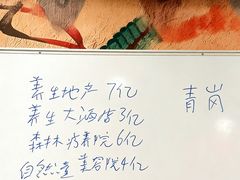 养生地产 7亿
养生大酒店3亿
森林疗养院 6亿
自然道 美容院4亿
青岗